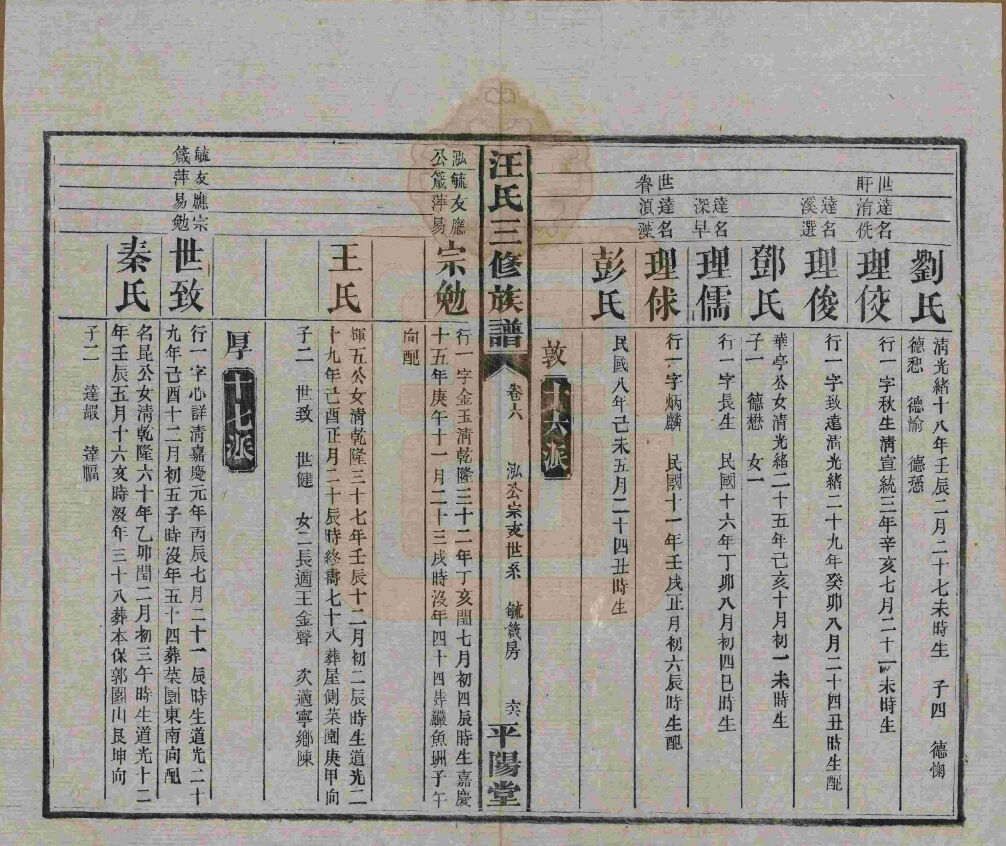 劉氏
清光緒十八年壬辰二月二十七未時生 子四 德恂
德恕 德愉 德
世達名
肝洧侁
理佼
行一字秋生清宣統三年辛亥七月二十一未時生
達名
溪選
理俊
行一字致遠清光緒二十九年癸卯八月二十四丑時生配
鄧氏
華亭公女清光緒二十五年己亥十月初一未時生
子一 德懋 女一
達名
深早
理儒
行一字長生 民國十六年丁卯八月初四巳時生
世達名
眷滇藻
理俅
行一字炳麟 民國十一年壬戌正月初六辰時生配
彭氏
民國八年己未五月二十四丑時生
敦 十六派
汪氏三修族譜
卷六 泓公宗支世系 毓箴房 六 平陽堂
泓毓友應
公箴萍易
宗勉
行一字金玉清乾隆三十二年丁亥閏七月初四辰時生嘉慶
十五年庚午十一月二十三戌時沒年四十四葬纙魚垇子午
向配
王氏
輝五公女清乾隆三十七年壬辰十二月初二辰時生道光二
十九年己酉正月二十辰時終壽七十八葬屋側菜園庚甲向
子二 世致 世健 女二長適王金聲 次適寧鄉陳
厚 十七派
毓友應宗
箴萍易勉
世致
行一字心詳清嘉慶元年丙辰七月二十一辰時生道光二十
九年己酉十二月初五子時沒年五十四葬菜園東南向配
秦氏
名昆公女清乾隆六十年乙卯閏二月初三午時生道光十二
年壬辰五月十六亥時沒年三十八葬本保郭園山艮坤向
子二 達嘏 達幅